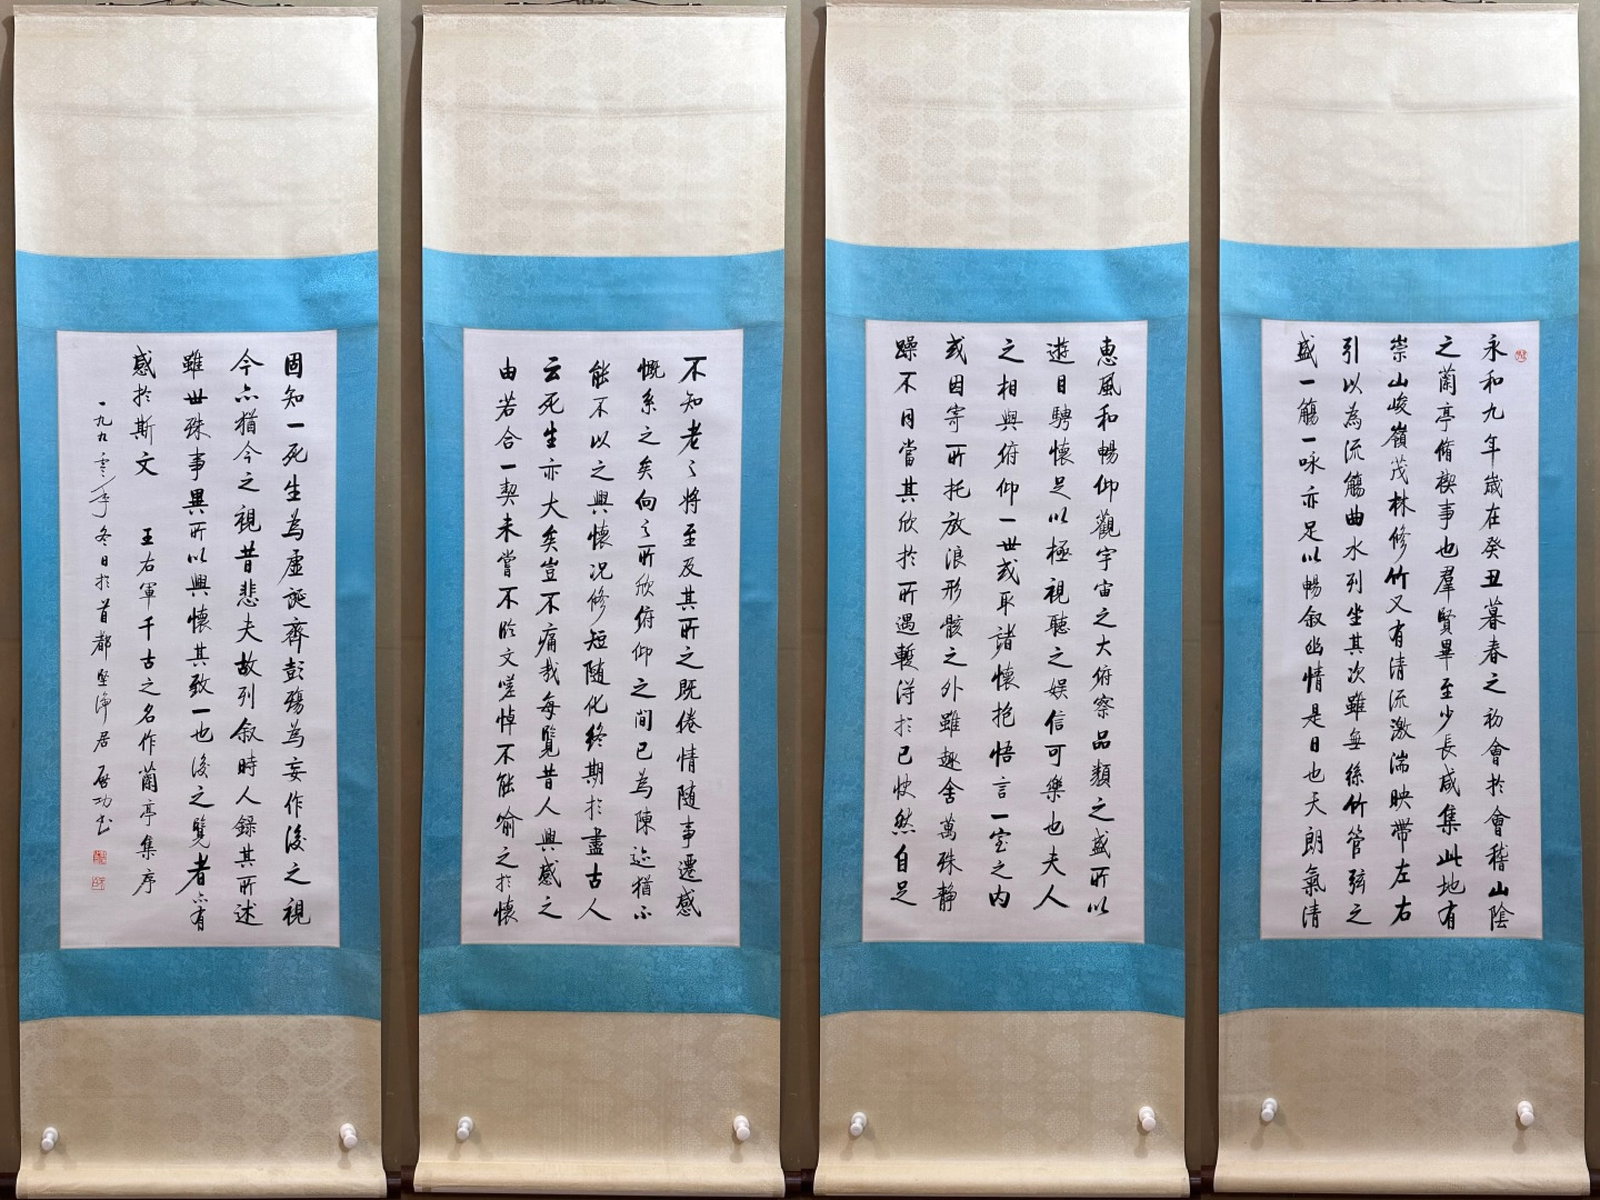 永和九年歲在癸丑暮春之初會於會稽山陰
之蘭亭脩稧事也羣賢畢至少長咸集此地有
崇山峻嶺茂林修竹又有清流激湍映帶左右
引以為流觴曲水列坐其次雖無絲竹管弦之
盛一觴一咏亦足以暢叙幽情是日也天朗氣清
惠風和暢仰觀宇宙之大俯察品類之盛所以
遊目騁懷足以極視聽之娱信可樂也夫人
之相與俯仰一世或取諸懷抱悟言一室之内
或因寄所托放浪形骸之外雖趣舍萬殊静
躁不同當其欣於所遇暫得於己快然自足
不知老之将至及其所之既倦情随事遷感
慨系之矣向之所欣俯仰之間已為陳迹猶不
能不以之興懷况修短随化終期於盡古人
云死生亦大矣豈不痛哉每覽昔人興感之
由若合一契未嘗不臨文嗟悼不能喻之於懷
固知一死生為虚誕齊彭殤為妄作後之視
今亦猶今之視昔悲夫故列叙時人録其所述
雖世殊事異所以興懷其致一也後之覽者亦有
感於斯文 王右軍千古之名作蘭亭集序
一九九零年冬日於首都堅浄居啟功书